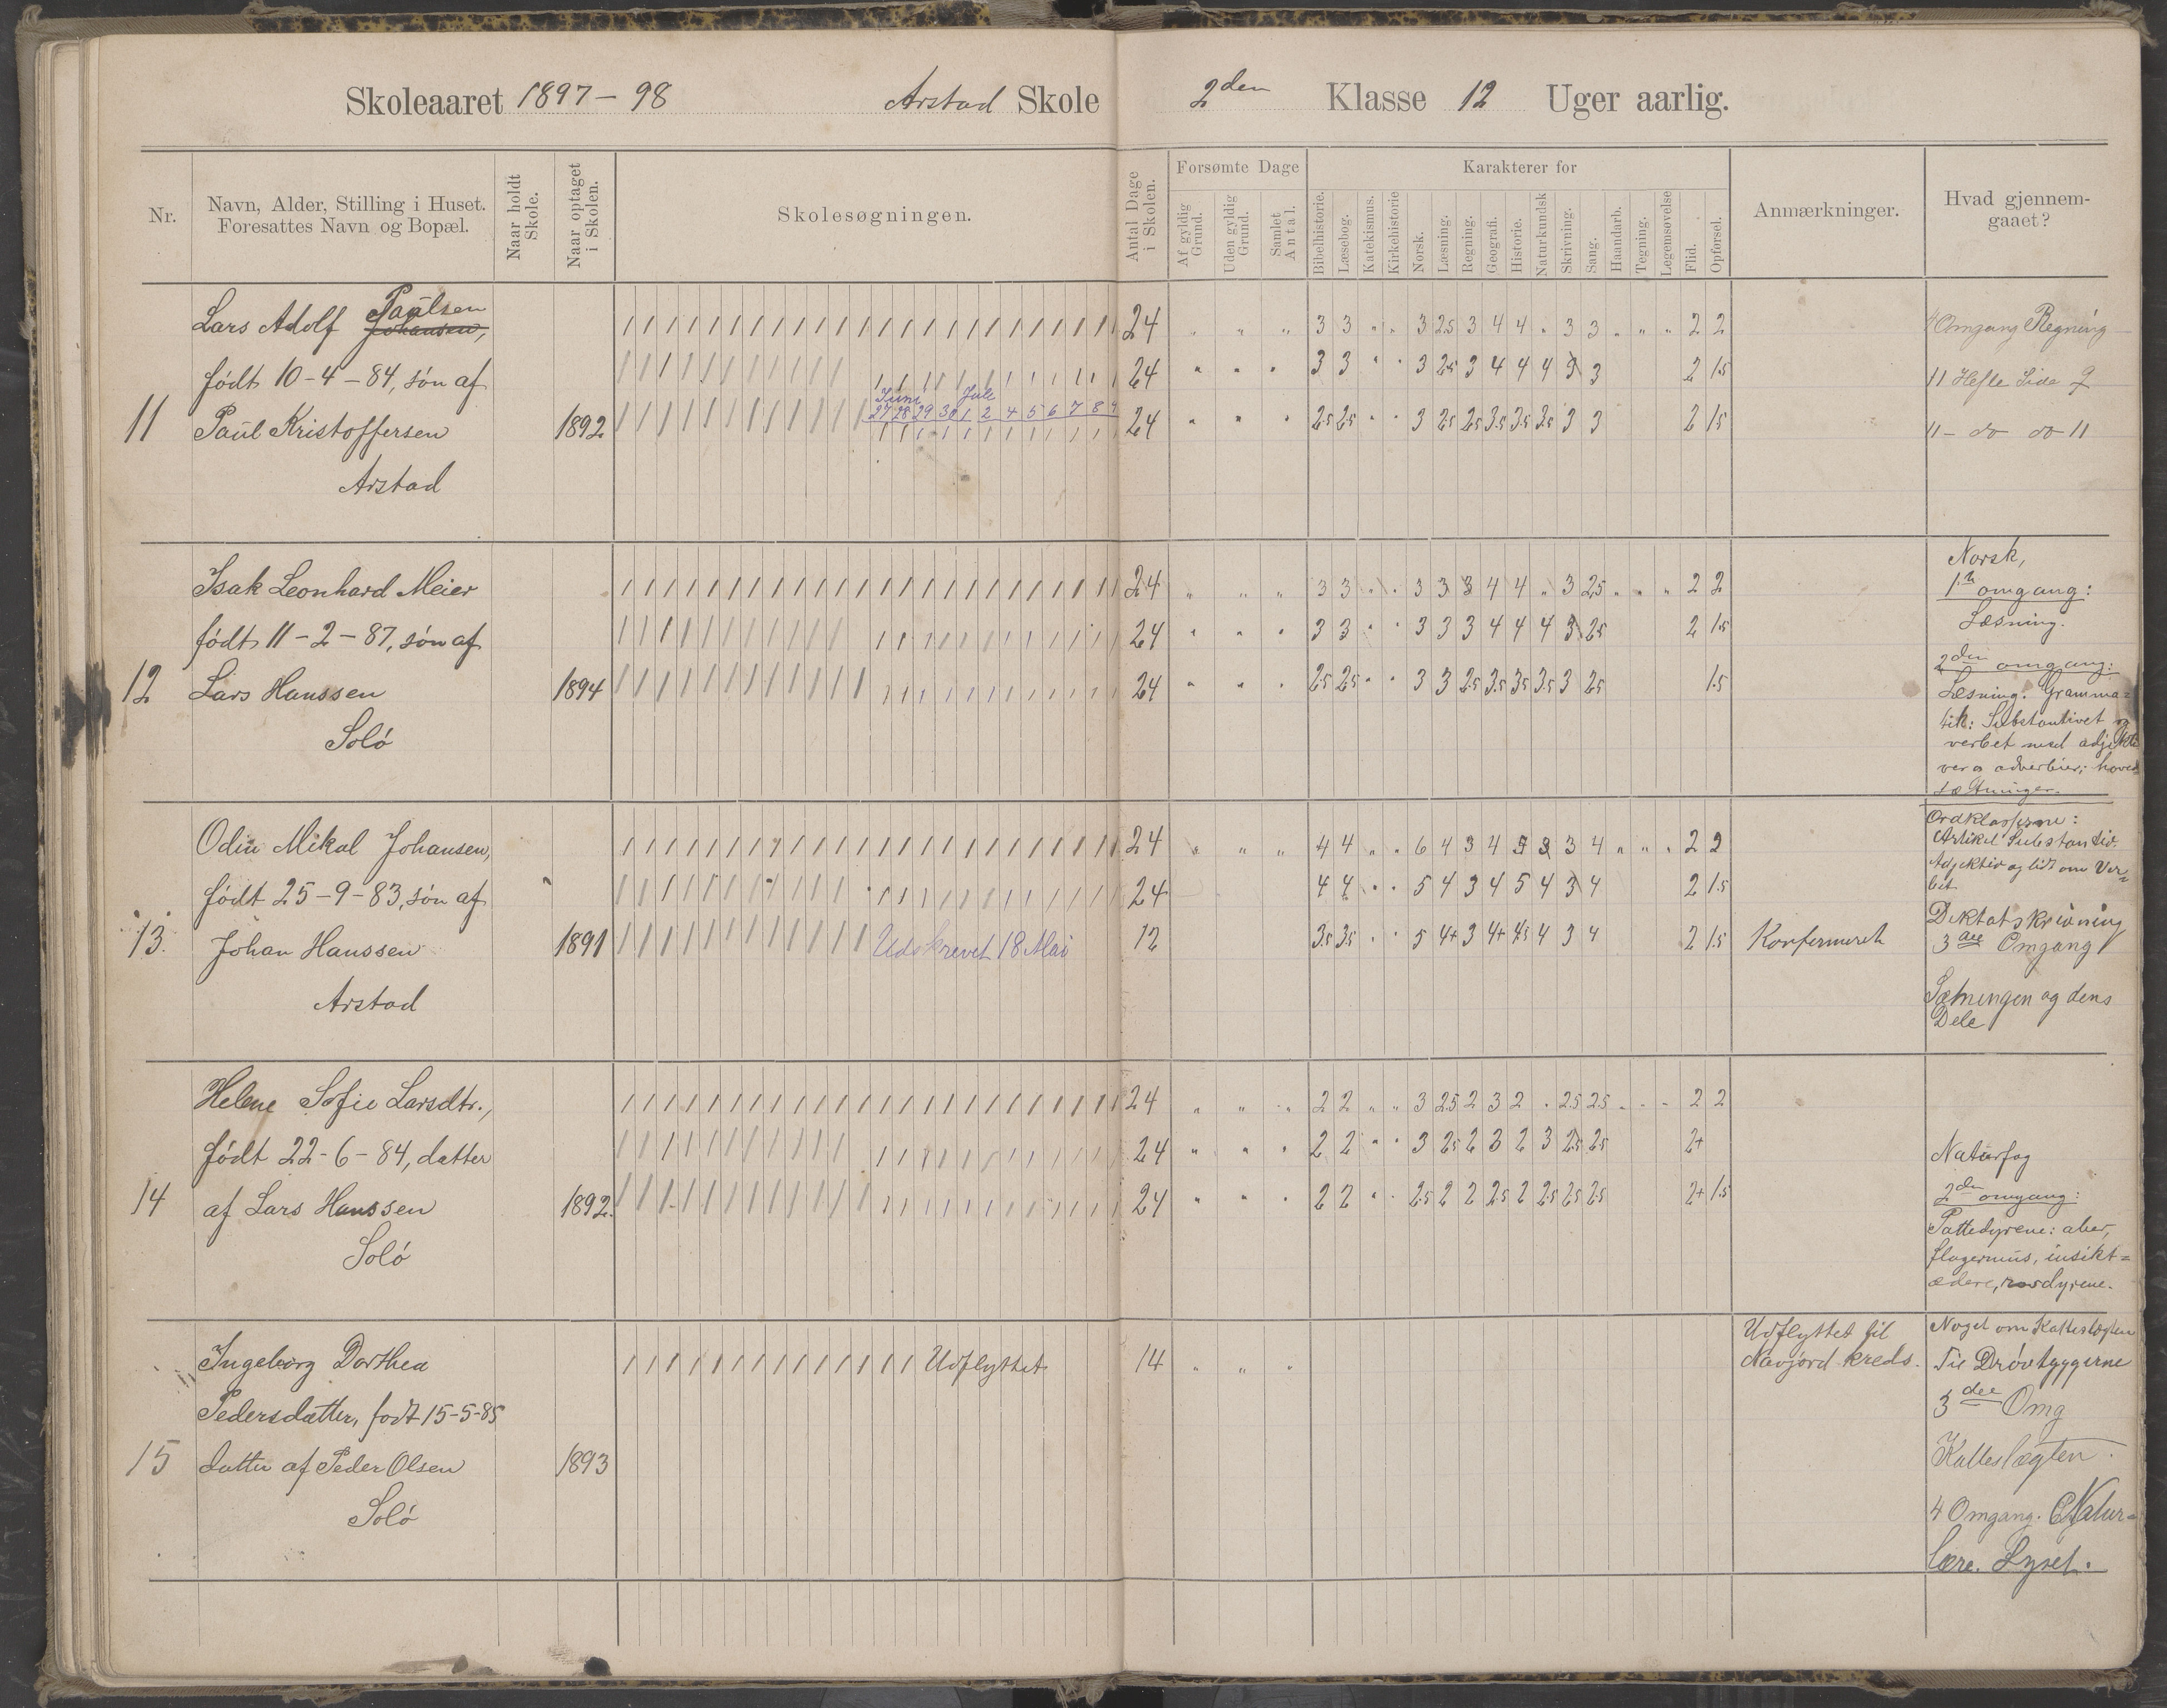 Skoleaaret 1897-98 Arstad Skole 2den Klasse 12 Uger aarlig.
Nr.
Navn, Alder, Stilling i Huset.
Foresattes Navn og Bopæl.
Naar holdt
Skole.
Naar optaget
i Skolen.
Skolesøgningen.
Antal Dage
i Skolen.
Forsømte Dage
Af gyldig
Grund.
Uden gyldig
Grund.
Samlet
Antal.
Karakterer for
Bibelhistorie.
Læsebog.
Katekismus.
Kirkehistorie
Norsk.
Læsning.
Regning.
Geografi.
Historie.
Naturkundsk
Skrivning.
Sang.
Haandarb.
Tegning.
Legemsøvelse
Flid.
Opførsel.
Anmærkninger.
Hvad gjennem-
gaaet?
Paulsen
Lars Adolf Johansen, 24 " " " 3 3 " " 3 2.5 3 4 4 " 3 3 " " " 2 2
født 10-4-84, søn af 24 " " " 3 3 " " 3 2.5 3 4 4 4 3 3 2 1.5
Juni Jule
27 28 29 30 1 2 4 5 6 7 8 9
11 Paul Kristoffersen 1892 24 " " " 2.5 2.5 " " 3 2.5 2.5 3.5 3.5 3.5 3 3 2 1.5
Arstad
4 Omgang Regning
11 Hefte Side 9
11 - do do 11
Isak Leonhard Meier 24 " " " 3 3 " " 3 3 3 4 4 " 3 2.5 " " " 2 2
født 11-2-87, søn af 24 " " " 3 3 " " 3 3 3 4 4 4 3 2.5 2 1.5
12 Lars Hanssen 1894 24 " " " 2.5 2.5 " " 3 3 2.5 3.5 3.5 3.5 3 2.5 1.5
Solø
Norsk,
1ste omgang:
Læsning.
2den omgang:
Læsning. Gramma=
tik: Substantivet og
verbet med adjekti
ver og adverbier; hoved
sætninger.
Odin Mikal Johansen, 24 " " " 4 4 " " 6 4 3 4 5 3 3 4 " " " 2 2
født 25-9-83, søn af 24 4 4 " " 5 4 3 4 5 4 3 4 2 1.5
13. Johan Hanssen 1891 Udskrevet 18 Mai 12 3.5 3.5 " " 5 4+ 3 4+ 4.5 4 3 4 2 1.5 Konfirmeret
Arstad
Ordklasserne:
Artikel Substantiv
Adjektiv og lidt om Ver=
bet
Diktatskrivning
3die Omgang
Sætningen og dens
Dele
Helene Sofie Larsdtr., 24 " " " 2 2 " " 3 2.5 2 3 2 " 2.5 2.5 - - - 2 2
født 22-6-84, datter 24 " " " 2 2 " " 3 2.5 2 3 2 3 2.5 2.5 2+
14 af Lars Hanssen 1892. 24 " " " 2 2 " " 2.5 2 2 2.5 2 2.5 2.5 2.5 2+ 1.5
Solø
Naturfag
2den omgang:
Pattedyrene: aber,
flagermus, insikt=
ædere, rovdyrene.
Ingeborg Dorthea Udflyttet 14 " " "
Pedersdatter, født 15-5-85
15 datter af Peder Olsen 1893
Solø
Udflyttet til
Navjord kreds.
Noget om Katteslægten
Til Drøvtyggerne
3die Omg
Katteslægten.
4 Omgang. Natur=
lære. Lyset.